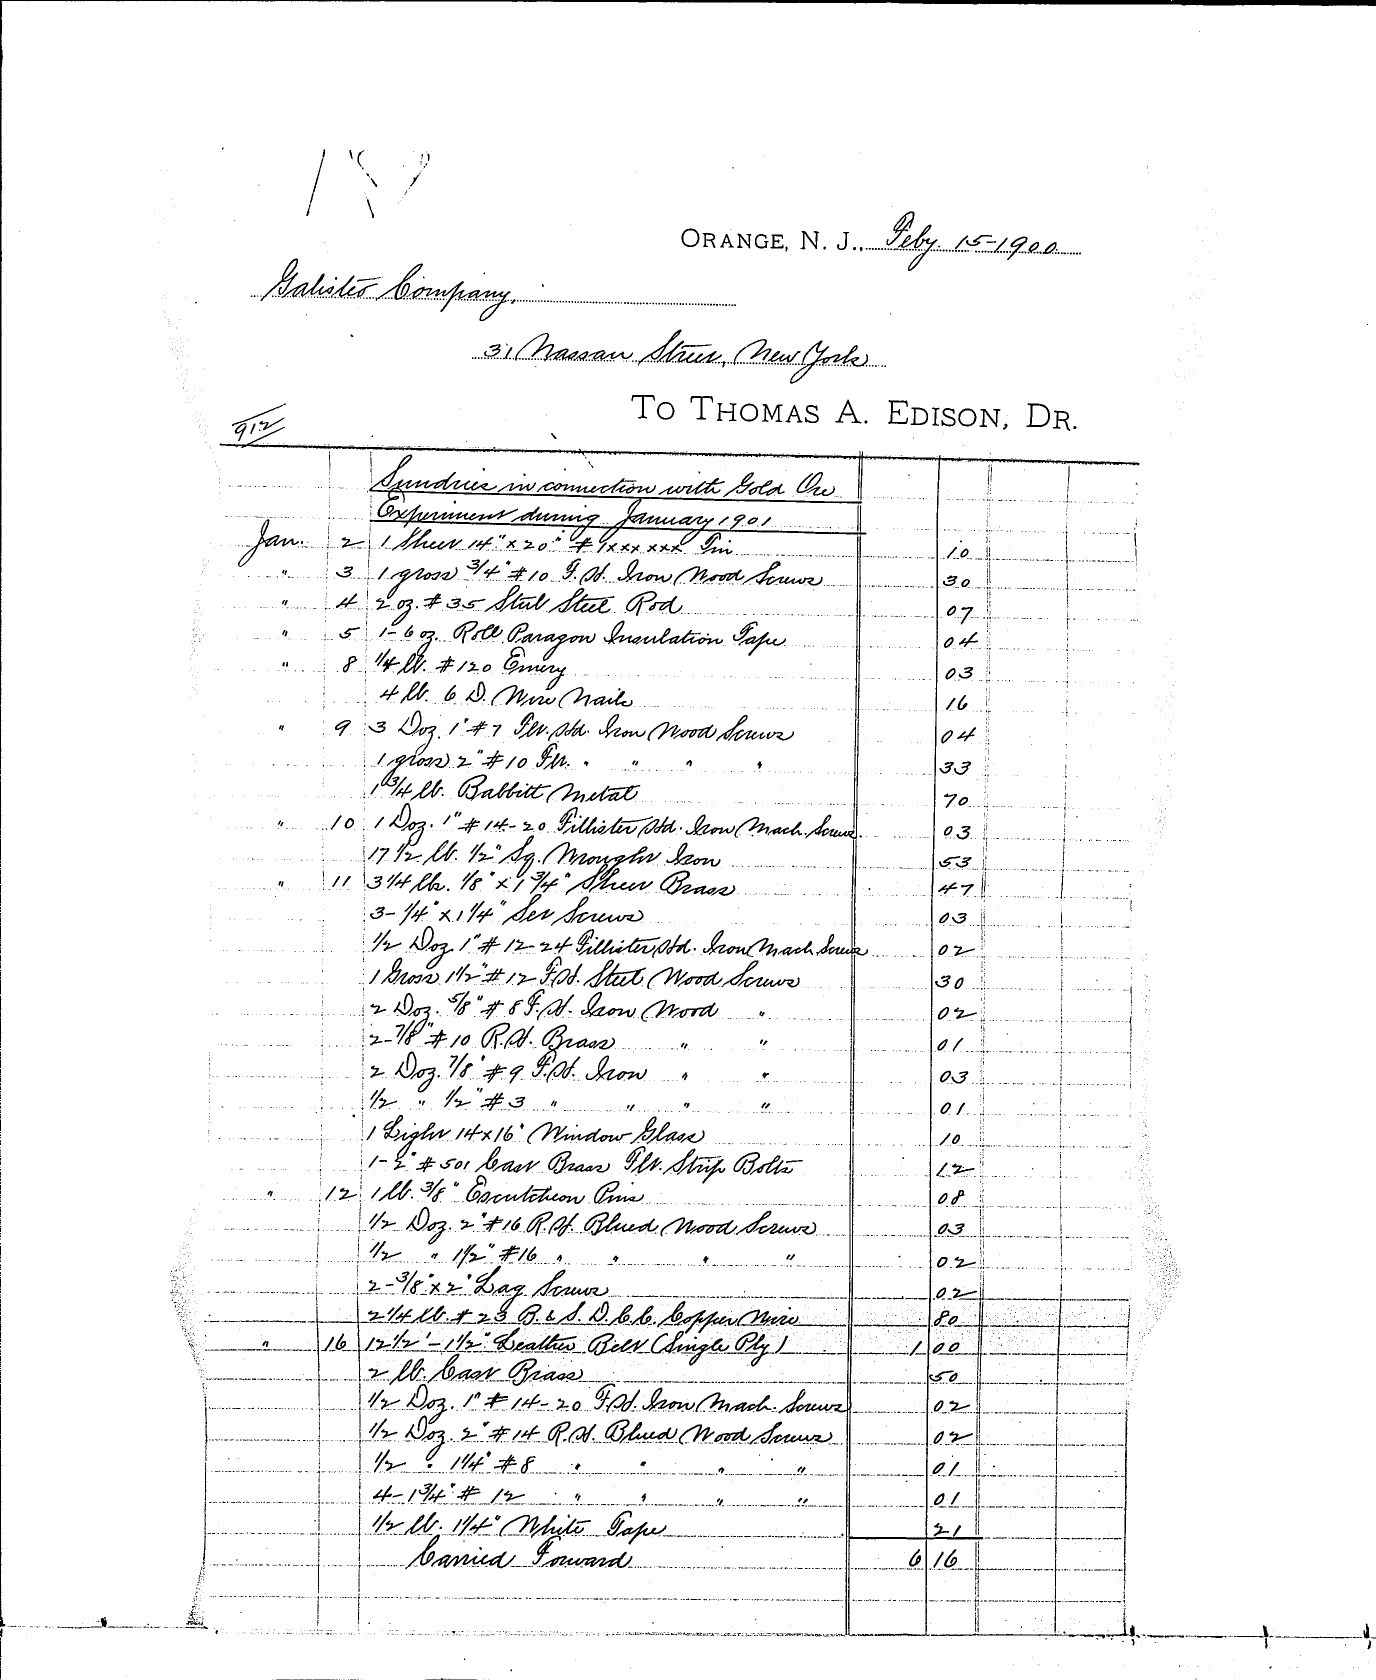 ORANGE, N. J., Feby. 15-1900
Galisteo Company,
31 Nassau Street, New York
TO THOMAS A. EDISON, DR.
912
Sundries in connection with Gold Ore
Experiment during January 1901
Jan. 2 1 Sheet 14" x 20" # 1xxxxxx Tin 10
" 3 1 gross 3/4" #10 F.H. Iron Wood Screws 30
" 4 2 oz. #35 Stub Steel Rod 07
" 5 1-6 oz. Roll Paragon Insulation Tape 04
" 8 1/4 lb. #120 Emery 03
4 lb. 6 D. Wire Nails 16
" 9 3 Doz. 1" #7 Flt. Hd. Iron Wood Screws 04
1 gross 2" #10 Flt. " " " " 33
1 3/4 lb. Babbitt Metal 70
" 10 1 Doz. 1" #14-20 Fillister Hd. Iron Mach. Screws 03
17 1/2 lb. 1/2" Sq. Wrought Iron 53
" 11 3 1/4 lbs. 1/8" x 1 3/4" Sheet Brass 47
3-1/4" x 1 1/4" Set Screws 03
1/2 Doz. 1" #12-24 Fillister Hd. Iron Mach. Screws 02
1 Gross 1 1/2" #12 F.H. Steel Wood Screws 30
2 Doz. 5/8" #8 F.H. Iron Wood " 02
2-7/8" #10 R.H. Brass " " 01
2 Doz. 7/8" #9 F.H. Iron " " 03
1/2 " 1/2" #3 " " " " 01
1 Light 14x16" Window Glass 10
1-2" #501 Cast Brass Flt. Strip Bolts 12
" 12 1 lb. 3/8" Escutcheon Pins 08
1/2 Doz. 2" #16 R.H. Blued Wood Screws 03
1/2 " 1 1/2" #16 " " " " 02
2-3/8" x 2" Lag Screws 02
2 1/4 lb. #23 B. & S. D.C.C. Copper Wire 80
" 16 12 1/2' - 1 1/2" Leather Belt (Single Ply) 1 00
2 lb. Cast Brass 50
1/2 Doz. 1" #14-20 F.H. Iron Mach. Screws 02
1/2 Doz. 2" #14 R.H. Blued Wood Screws 02
1/2 " 1 1/4" #8 " " " " 01
4-1 3/4" #12 " " " " 01
1/2 lb. 1 1/4" White Tape 21
Carried Forward 6 16